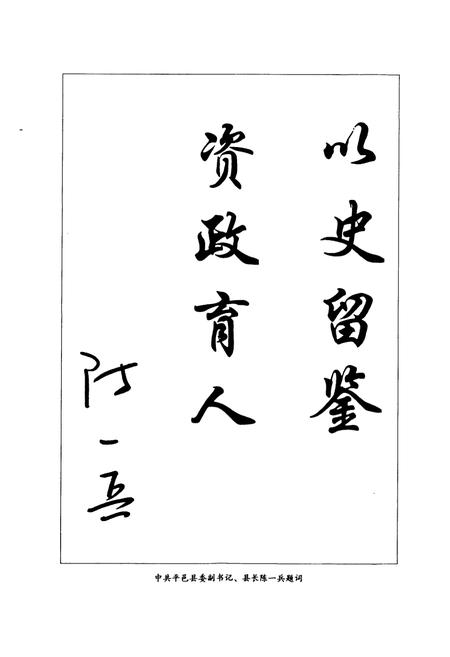 以史留鉴
资政育人
陈一兵
中共平邑县委副书记、县长陈一兵题词